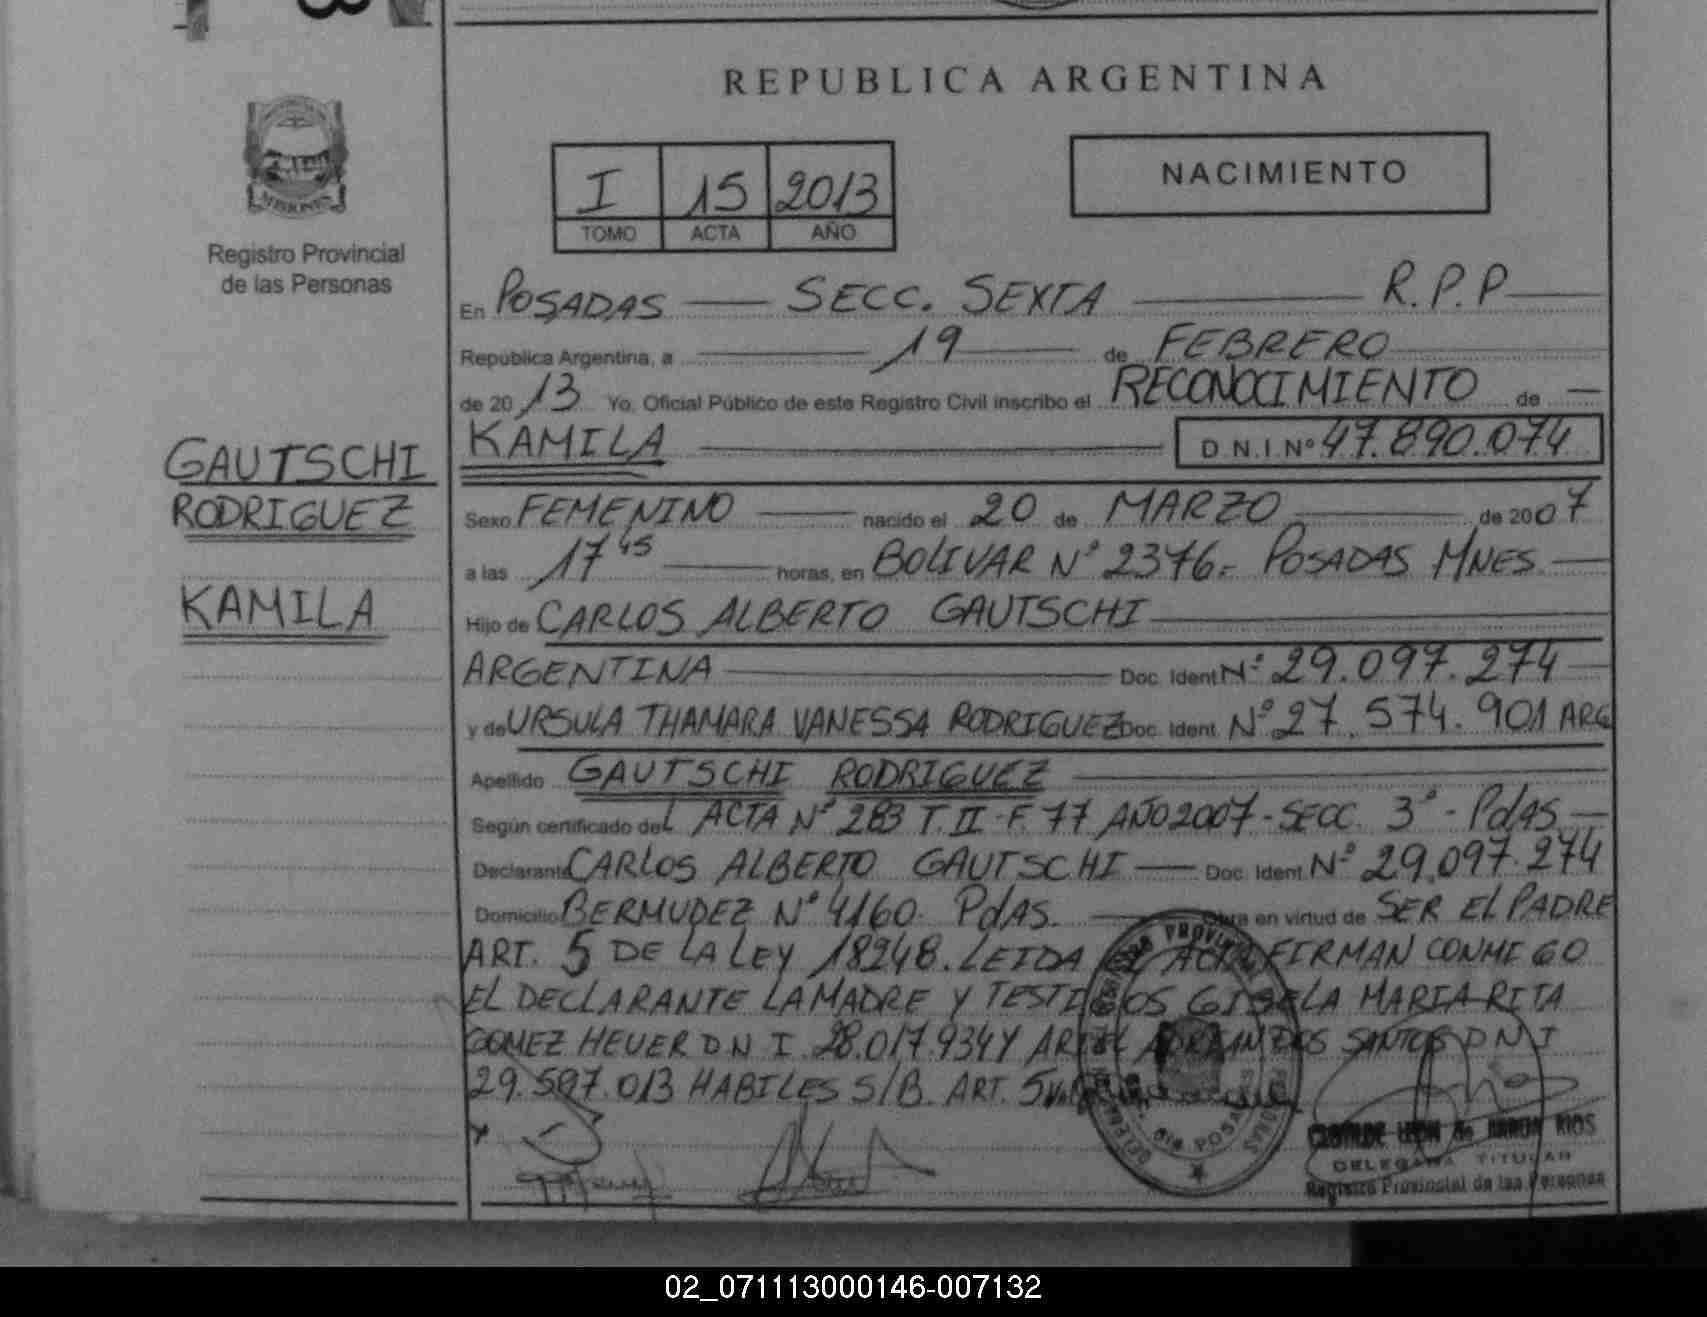 REPUBLICA ARGENTINA
I 15 2013
TOMO ACTA AÑO
NACIMIENTO
MISIONES
Registro Provincial
de las Personas
GAUTSCHI
RODRIGUEZ
KAMILA
En POSADAS — SECC. SEXTA — R.P.P —
República Argentina, a — 19 — de FEBRERO —
de 2013 Yo, Oficial Público de este Registro Civil inscribo el RECONOCIMIENTO de —
KAMILA — D.N.I.Nº 47.890.074
Sexo FEMENINO — nacido el 20 de MARZO — de 2007
a las 17 45 — horas, en BOLIVAR Nº 2376.- POSADAS MNES. —
Hijo de CARLOS ALBERTO GAUTSCHI —
ARGENTINA — Doc. Ident Nº 29.097.274 —
y de URSULA THAMARA VANESSA RODRIGUEZ Doc. Ident. Nº 27.574.901 ARG
Apellido GAUTSCHI RODRIGUEZ —
Según certificado del ACTA Nº 283 T.II-F.77 AÑO 2007-SECC. 3ª - PdAS —
Declarante CARLOS ALBERTO GAUTSCHI — Doc. Ident. Nº 29.097.274
Domicilio BERMUDEZ Nº 4160. PdAS. — Obra en virtud de SER EL PADRE
ART. 5 DE LA LEY 18248. LEIDA EL ACTA FIRMAN CONMIGO
EL DECLARANTE LA MADRE Y TESTIGOS GISELA MARIA RITA
GOMEZ HEUER D N I 28.017.934 Y ARIEL ADRIAN DOS SANTOS D N I
29.597.013 HABILES S/B. ART. 5
DELEGADA TITULAR
Registro Provincial de las Personas
02_071113000146-007132